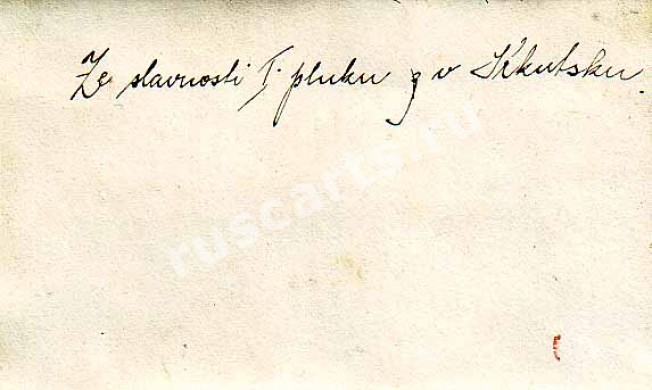 Ze slavnosti I. pluku v Irkutsku.
ruscarts.ru